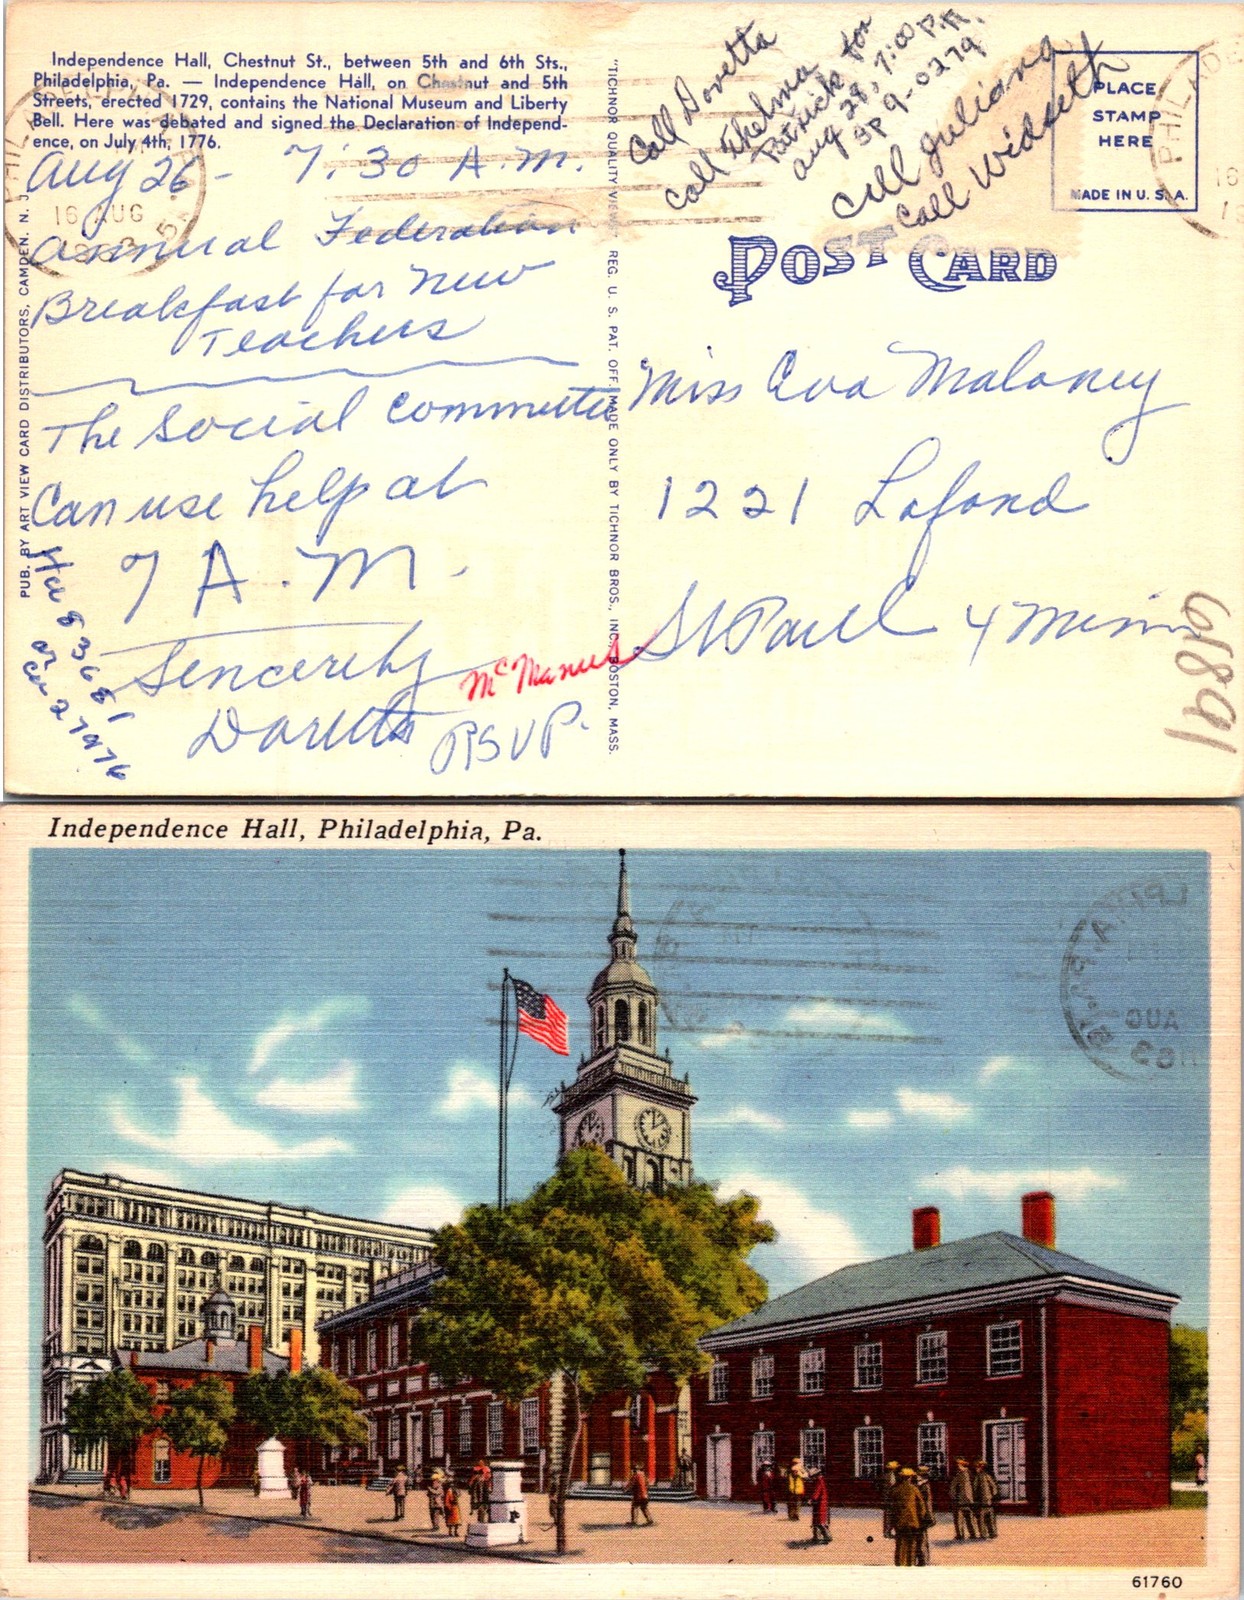 Independence Hall, Chestnut St., between 5th and 6th Sts.,
Philadelphia, Pa. — Independence Hall, on Chestnut and 5th
Streets, erected 1729, contains the National Museum and Liberty
Bell. Here was debated and signed the Declaration of Independ-
ence, on July 4th, 1776.
Aug 26 - 7:30 A.M.
Annual Federation
Breakfast for New
Teachers
The Social Committee
Can use help at
7 A.M.
Sincerely
Doretta
McManus
RSVP.
Ha 83681
or
Ca 27976
PUB. BY ART VIEW CARD DISTRIBUTORS, CAMDEN, N. J.
"TICHNOR QUALITY VIEWS," REG. U. S. PAT. OFF. MADE ONLY BY TICHNOR BROS., INC., BOSTON, MASS.
Call Dovetta
Call Thelma
Patrick for
Aug 28, 7:00 P.M.
SP 9-0279
Call Juliana
Call Widseth
PLACE
STAMP
HERE
MADE IN U. S. A.
16 AUG
POST CARD
Miss Eva Maloney
1221 Lafond
St Paul 4 Minn
61891
Independence Hall, Philadelphia, Pa.
AUG
P
61760